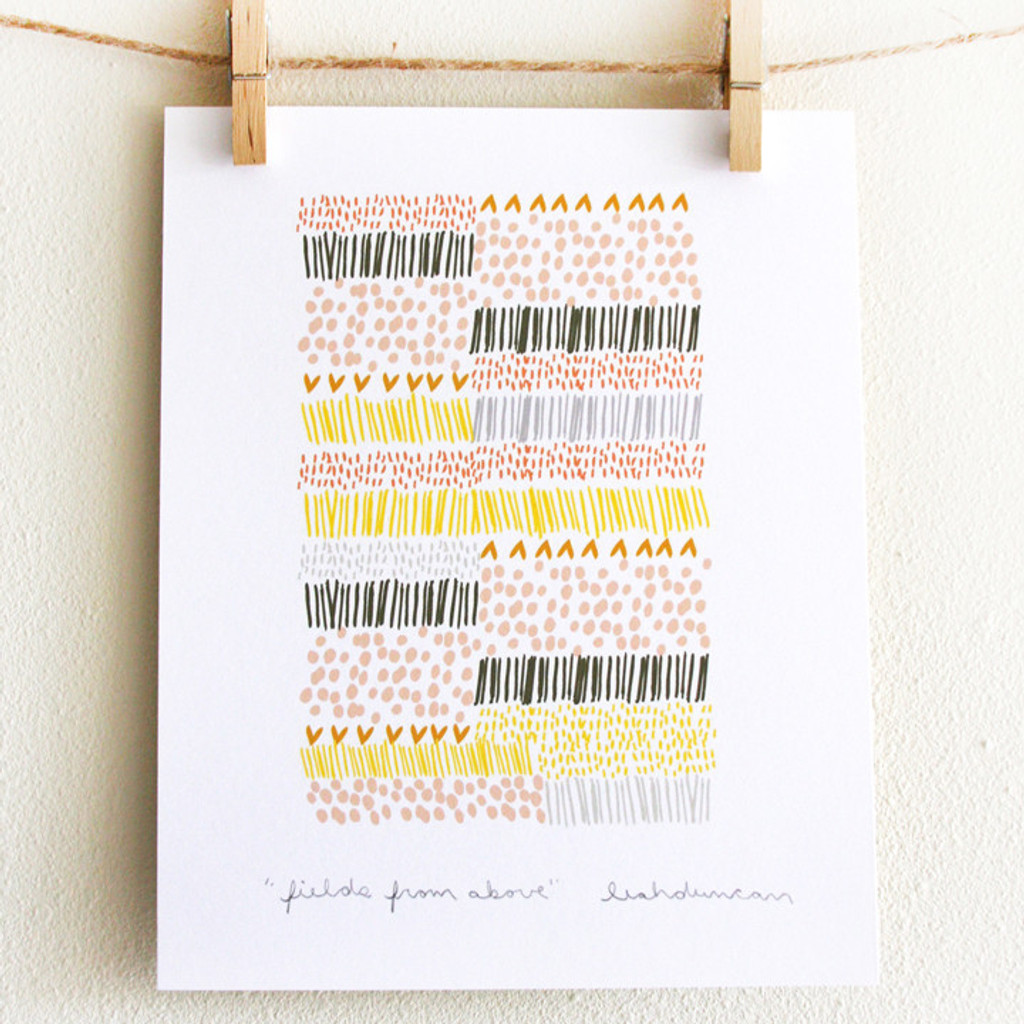 "fields from above" leahduncan